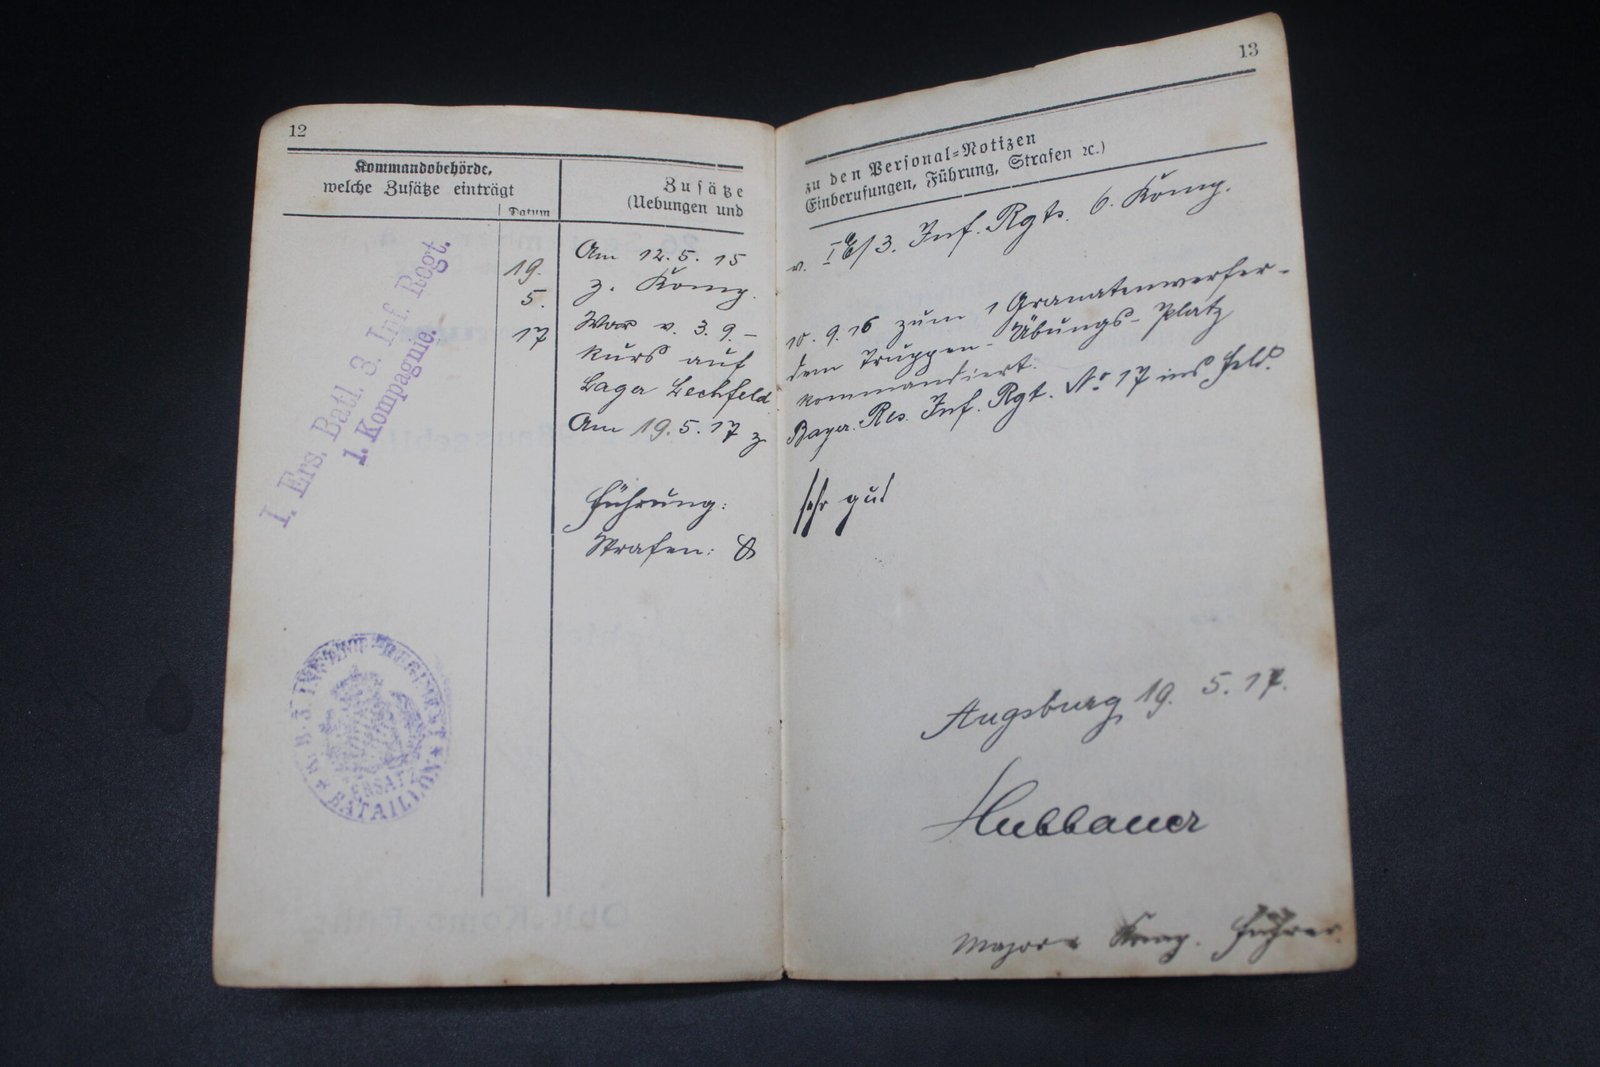 12
Kommandobehörde,
welche Zusätze einträgt
Datum
Zusätze
(Uebungen und
I. Ers. Batl. 3. Inf. Regt.
1. Kompagnie.
19.
5.
17
Am 12.5.15
z. Komp.
War v. 3.9.-
kurs auf
Lager Lechfeld
Am 19.5.17 z
Führung:
Strafen:
B. 3. INFANT. REGIMENT
ERSATZ
BATAILLON
13
zu den Personal-Notizen
Einberufungen, Führung, Strafen ꝛc.)
v. I E/3. Inf. Rgts. 6. Komp.
10.9.16 zum 1 Granatenwerfer-
dem Truppen-Übungs-Platz
kommandiert.
Bayer. Res. Inf. Rgt. No 17 ins Feld.
sehr gut
Augsburg 19.5.17.
Hubbauer
Major u Komp. Führer.